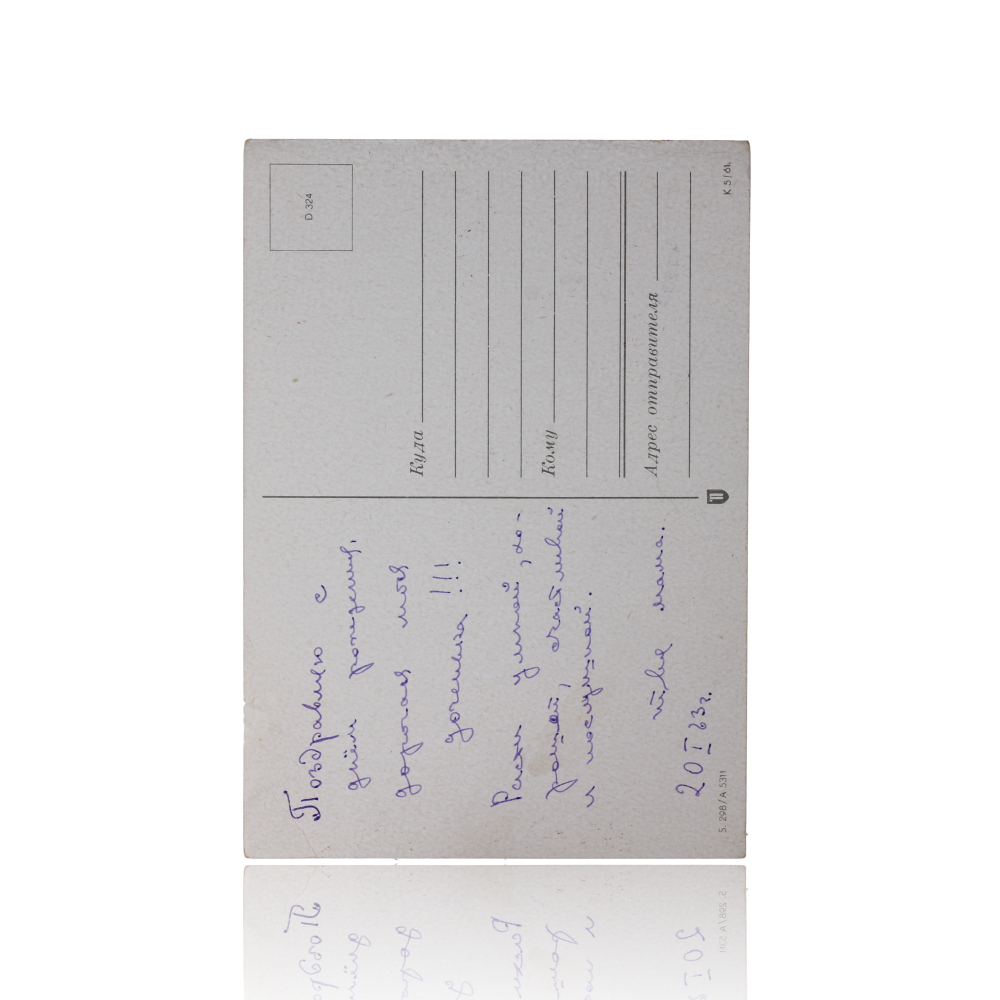 Поздравляю с
днём рождения,
дорогая моя
доченька !!!
Расти умной, хо-
рошей, счастливой
и послушной.
твоя мама.
20 I 63г.
S. 298/A 5311
D 324
Куда
Кому
Адрес отправителя
K 5/61.